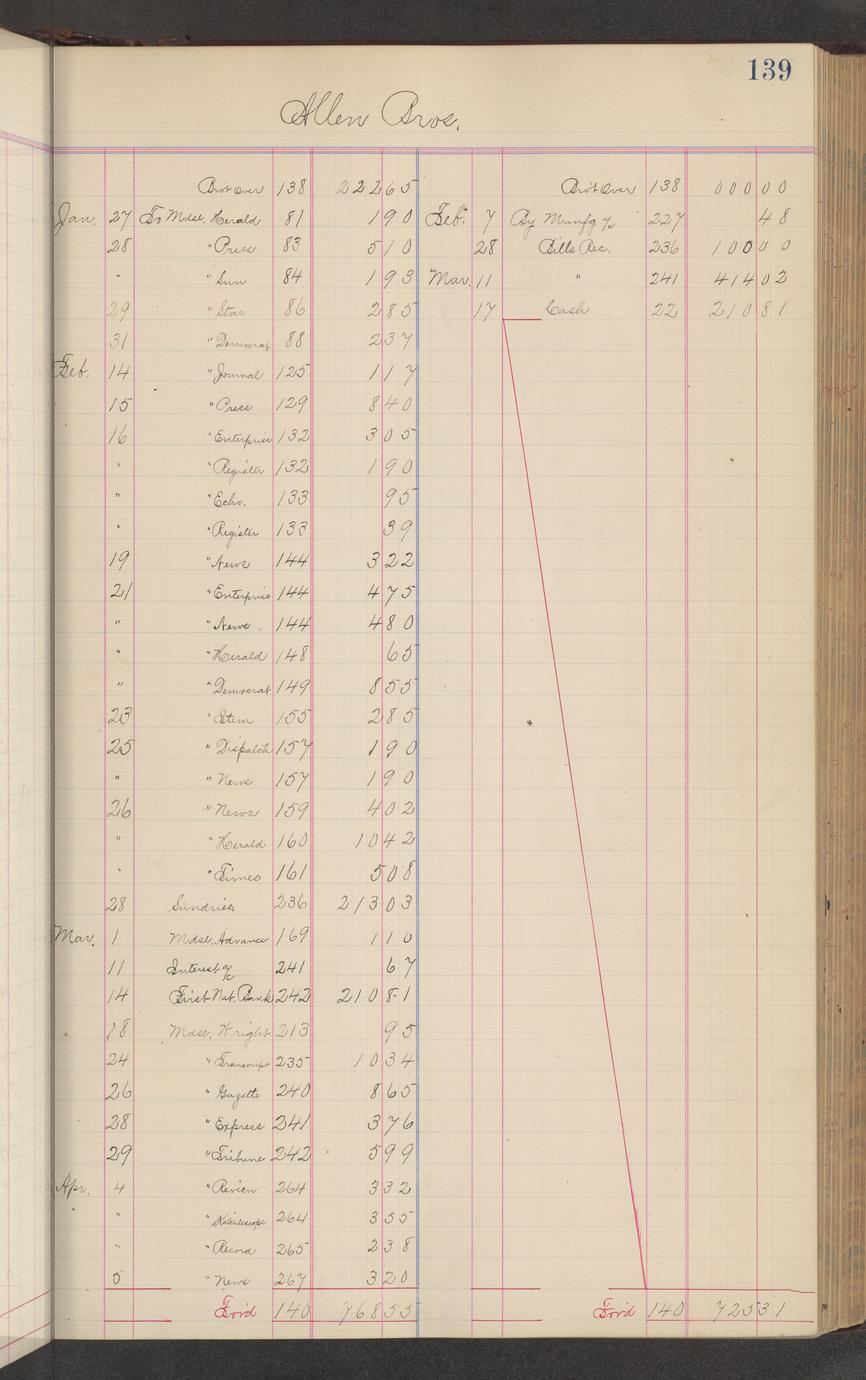 139
Allen Bros.
Bro't Over 138 222 65 Bro't Over 138 000 00
Jan. 27 To Mdse. Herald 81 1 90 Feb. 7 By Munfg a/c 227 48
28 " Press 83 5 10 28 Bills Rec. 236 100 00
" " Sun 84 1 93 Mar. 11 " 241 414 02
29 " Star 86 2 85 17 Cash 22 210 81
31 " Democrat 88 2 37
Feb. 14 " Journal 125 1 17
15 " Press 129 8 40
16 " Enterprise 132 3 05
" " Register 132 1 90
" " Echo. 133 95
" " Register 133 39
19 " News 144 3 22
21 " Enterprise 144 4 75
" " News 144 4 80
" " Herald 148 65
" " Democrat 149 8 55
23 " 155 2 85
25 " Dispatch 157 1 90
" " News 157 1 90
26 " News 159 4 02
" " Herald 160 10 42
" " Times 161 5 08
28 Sundries 236 213 03
Mar. 1 Mdse. Advance 169 1 10
11 Interest a/c 241 67
14 First Nat. Bank 242 210 81
18 Mdse. Wright 213 95
24 " Transcript 235 10 34
26 " Gazette 240 8 65
28 " Express 241 3 76
29 " Tribune 242 5 99
Apr. 4 " Review 264 3 32
" " Kaleidescope 264 3 55
" " Record 265 2 38
5 " News 267 3 20
For'd 140 768 55 For'd 140 725 31